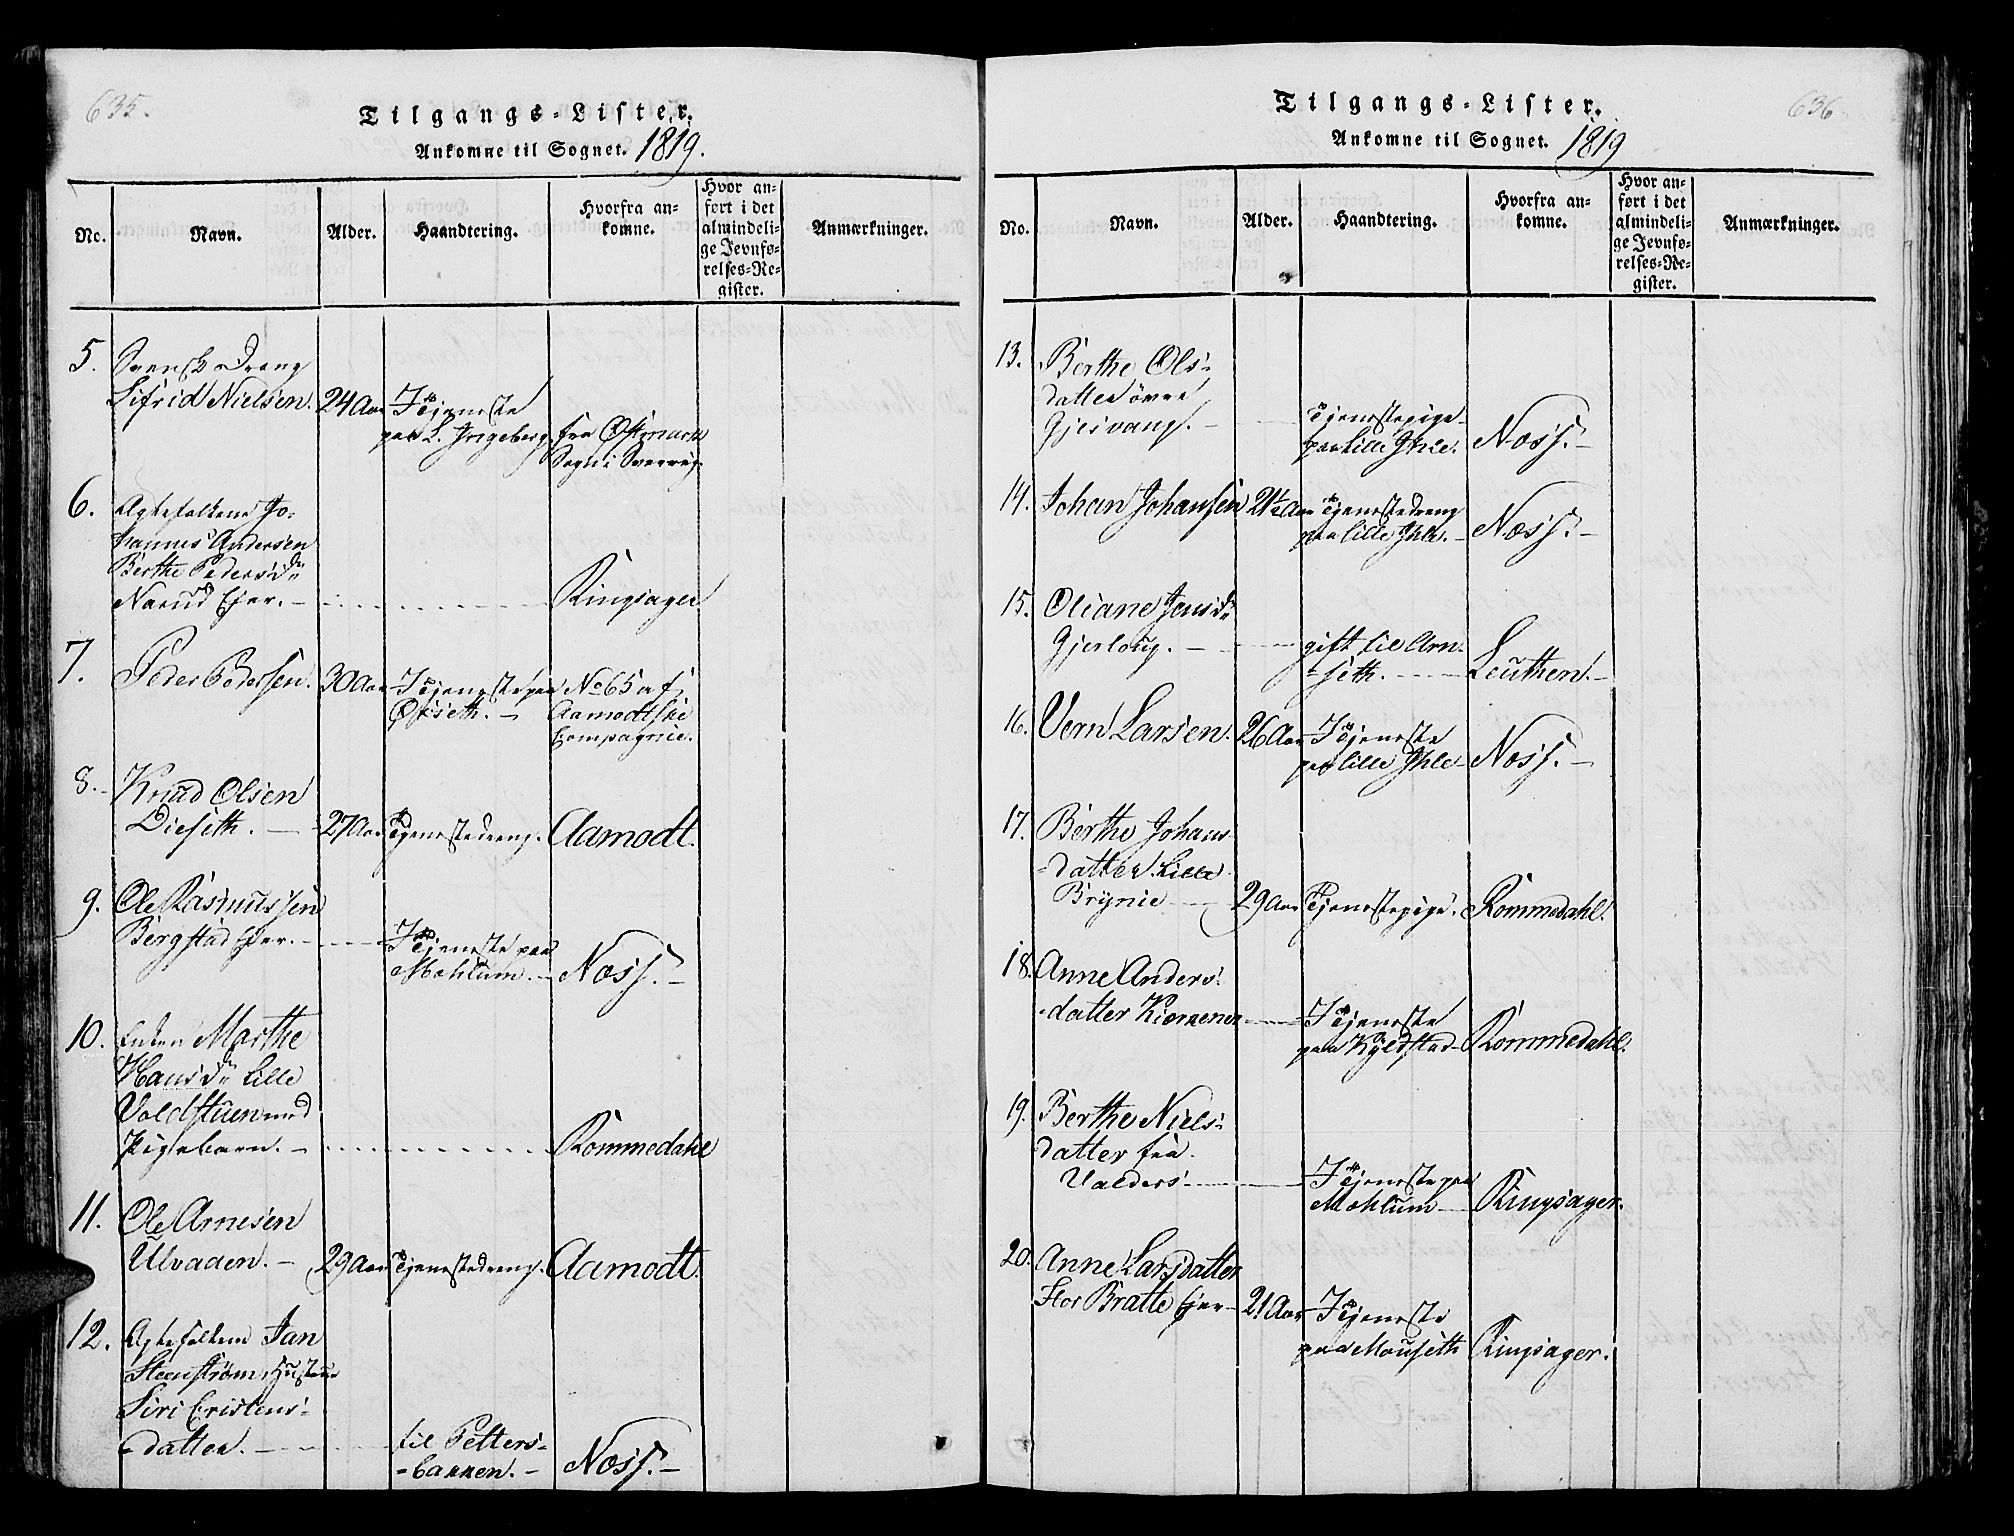 635.
Tilgangs-Lister.
Ankomne til Sognet. 1819.
No.
Navn.
Alder.
Haandtering.
Hvorfra an-
komne.
Hvor an-
ført i det
almindeli-
ge Jevnfø-
relses-Re-
gister.
Anmærkninger.
5. Svensk Dreng
Sifrid Nielsen. 24 Aar I Tjeneste
paa L. Ingeberg. fra Østmark
Sogn i Sverrig.
6. Ægtefolkene Jo-
hannes Andersen
Berthe Pedersdr
Narud Eier. Ringsager
7. Peder Pedersen. 30 Aar I Tjeneste paa No 65 af
Ofseth. Aamodtske
Compagnie.
8. Knud Olsen
Dieseth. 27 Aar Tjenestedreng. Aamodt.
9. Ole Rasmussen
Bergstad Eier. I Tjeneste paa
Mohlum. Næss.
10. Enken Marthe
Hansdr Lille
Voldstuen med
Pigebarn. Rommedahl
11. Ole Arnesen
Ulvaaen. 29 Aar Tjenestedreng. Aamodt.
12. Ægtefolkene Jan
Steenstrøm, Hustrue
Siri Cristens-
datter. til Petters-
bakken. Næss.
636
Tilgangs-Lister.
Ankomne til Sognet. 1819
No.
Navn.
Alder.
Haandtering.
Hvorfra an-
komne.
Hvor an-
ført i det
almindeli-
ge Jevnfø-
relses-Re-
gister.
Anmærkninger.
13. Berthe Ols-
datter øvre
Gjesvang. Tjenestepige
paa Lille Ihle. Næss.
14. Johan Johansen 21½ Aar Tjenestedreng
paa Lille Ihle. Næss.
15. Oliane Jensdr
Gjerloug. gift til Arn-
seth. Leuthen.
16. Vern Larsen. 26 Aar I Tjeneste
paa Lille Ihle Næss.
17. Berthe Johans
datter Lille
Brynie 29 Aar Tjenestepige. Rommedahl.
18. Anne Anders-
datter Kiernener I Tjeneste
paa Kyldstad Rommedahl.
19. Berthe Niels-
datter fra
Valders I Tjeneste paa
Mohlum Ringsager.
20. Anne Larsdatter
Flor Bratte Eier 21 Aar I Tjeneste
paa Mouseth Ringsager.